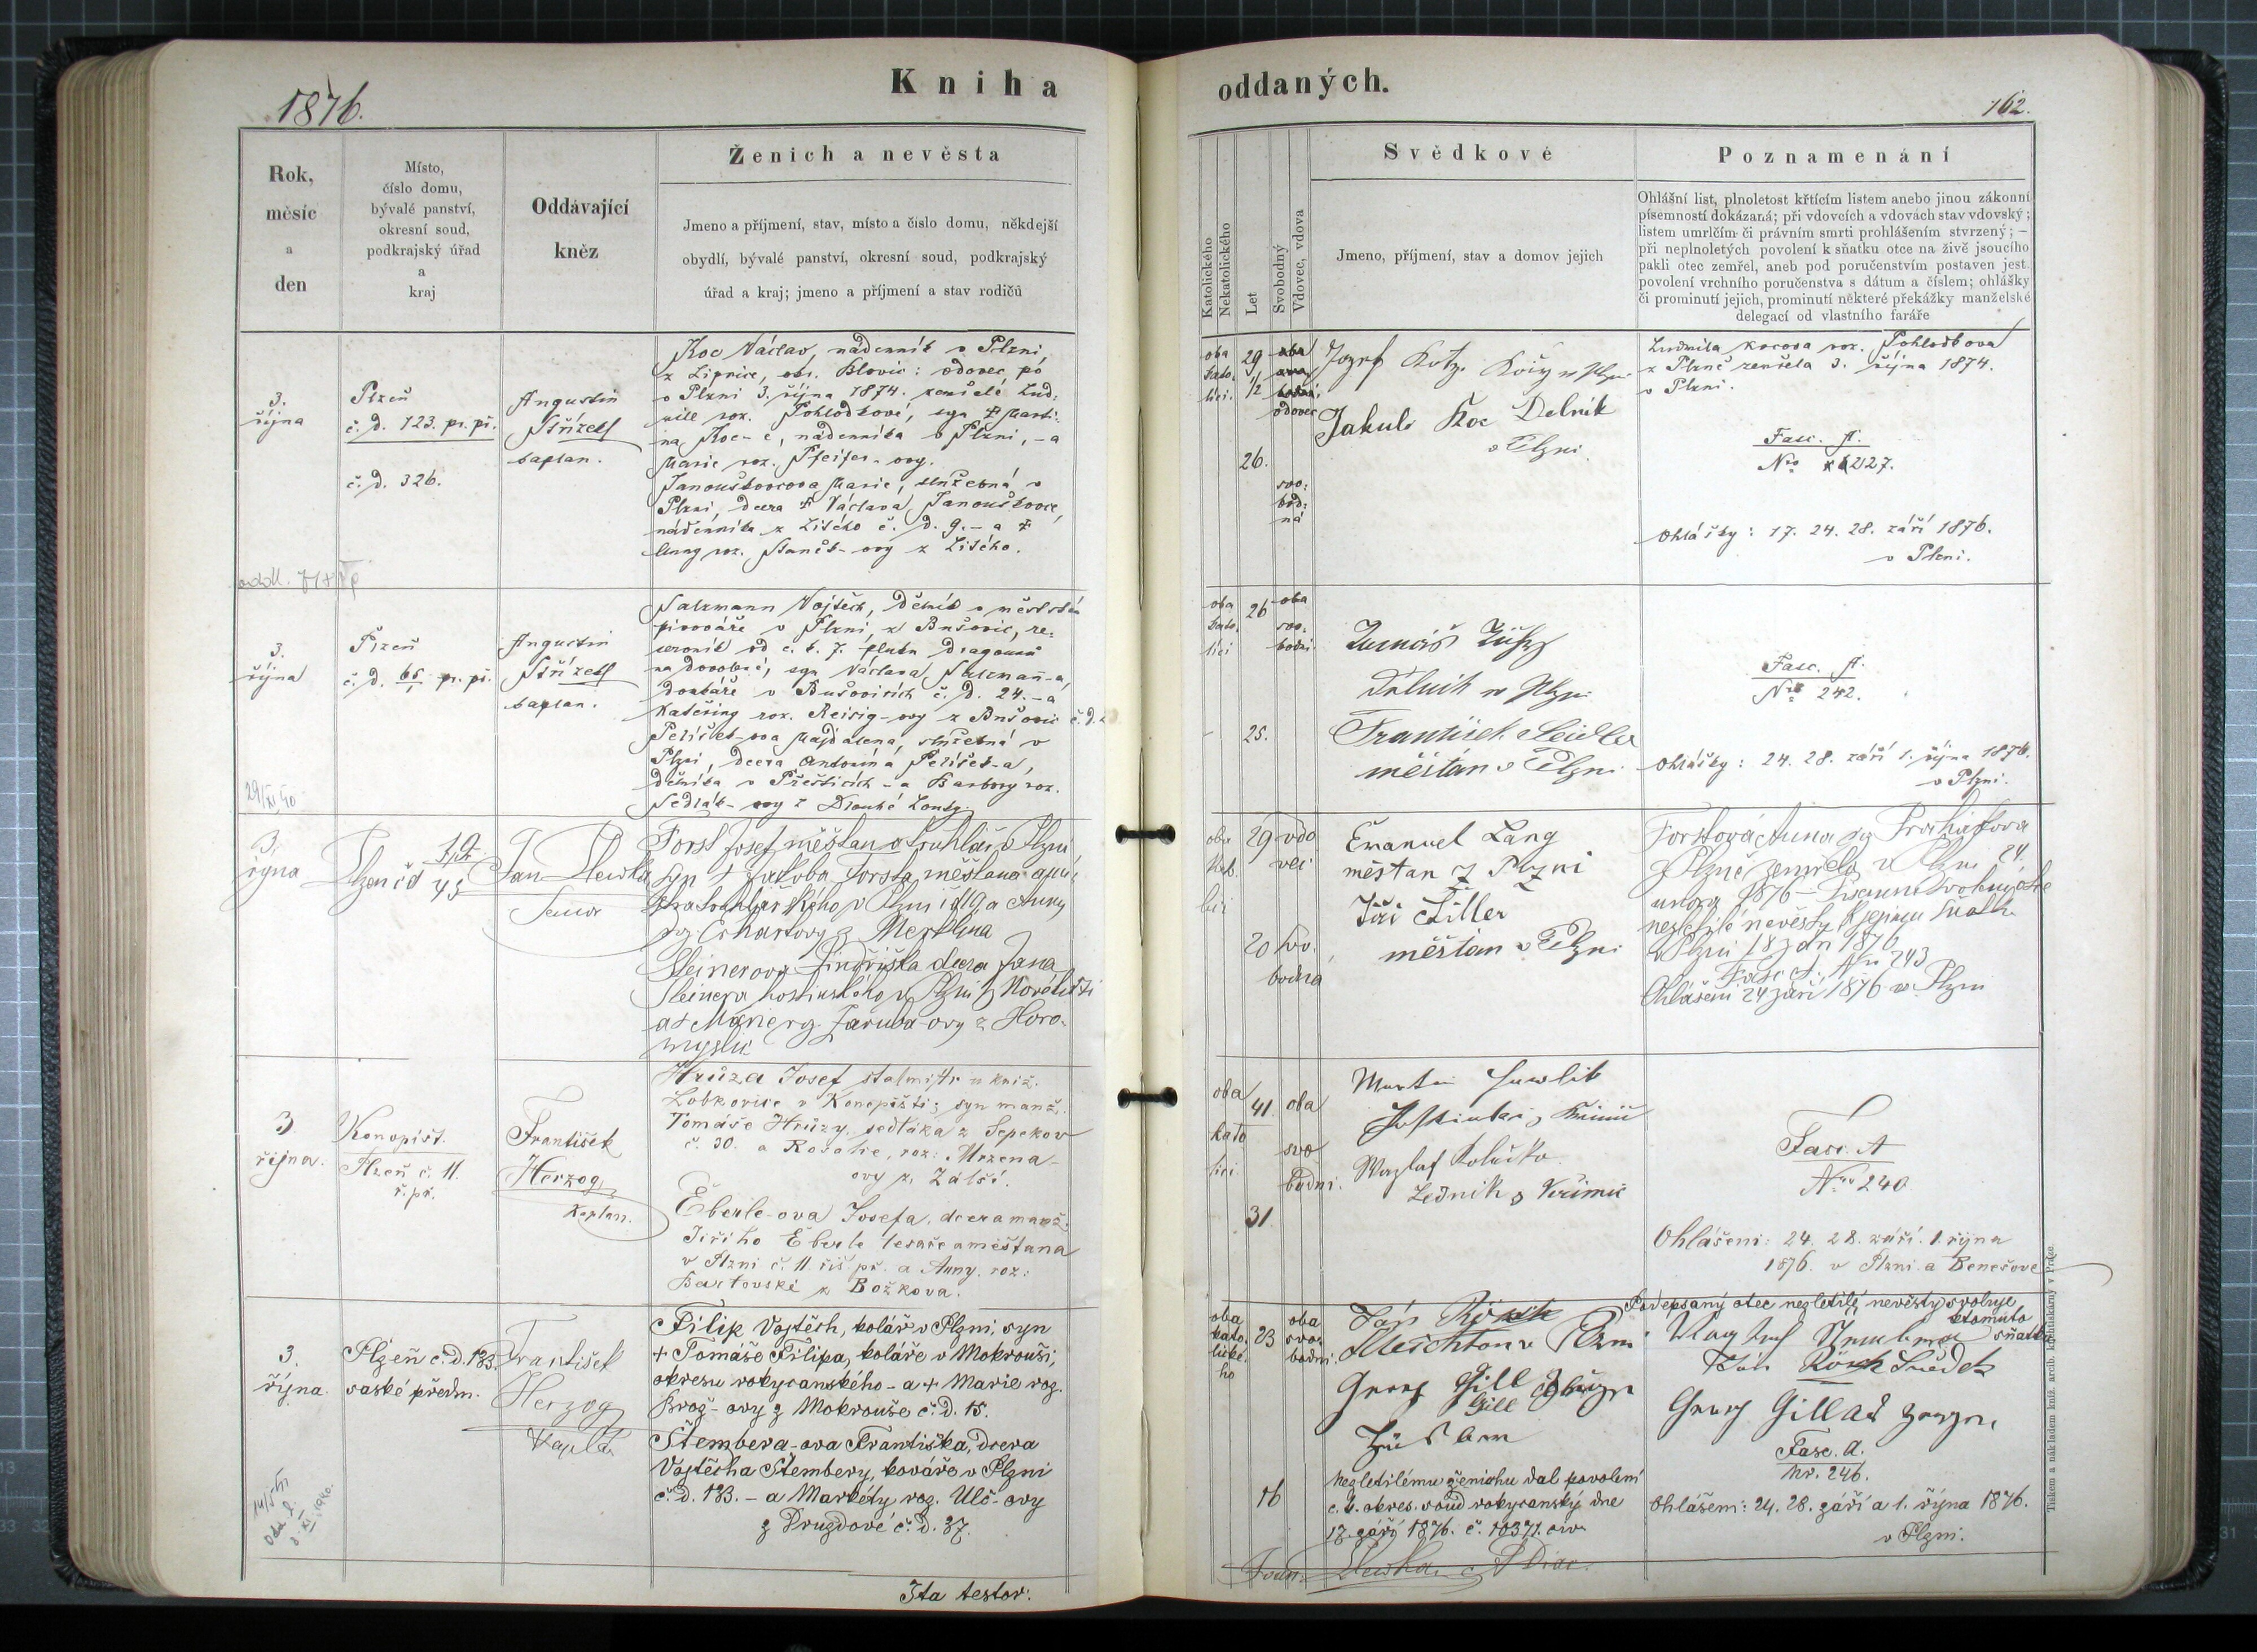 Kniha
oddaných.
1876.
162.
Rok,
měsíc
a
den
Místo,
číslo domu,
bývalé panství,
okresní soud,
podkrajský úřad
a
kraj
Oddávající
kněz
Ženich a nevěsta
Jmeno a příjmení, stav, místo a číslo domu, někdejší
obydlí, bývalé panství, okresní soud, podkrajský
úřad a kraj; jmeno a příjmení a stav rodičů
Katolického
Nekatolického
Let
Svobodný
Vdovec, vdova
Svědkové
Jmeno, příjmení, stav a domov jejich
Poznamenání
Ohlášní list, plnoletost křtícím listem anebo jinou zákonní
písemností dokázaná; při vdovcích a vdovách stav vdovský;
listem umrlčím či právním smrti prohlášením stvrzený; —
při neplnoletých povolení k sňatku otce na živě jsoucího
pakli otec zemřel, aneb pod poručenstvím postaven jest
povolení vrchního poručenstva s dátum a číslem; ohlášky
či prominutí jejich, prominutí některé překážky manželské
delegací od vlastního faráře
3.
října
Plzeň
č. d. 123. pr. př.
č. d. 326.
Augustin
Střízek
kaplan.
Koc Václav, nádenník v Plzni,
z Liprice, okr. Blovic: vdovec po
v Plzni 3. října 1874. zemřelé Lud-
mile roz. Pohlodkové, syn † Marti-
na Koc-e, nádenníka v Plzni, - a
Marie roz. Pfeifer-ovy.
Janouškovcova Marie, služebná v
Plzni, dcera † Václava Janouškovce,
nádenníka z Litého č. d. 9. - a †
Anny roz. Staněk-ovy z Litého.
oba
kato.
líci.
29
1/2
26.
vdovec
svo-
bod-
ná
Jozef Kotz
Jakub Koc Delnik
v Plzni.
Ludmila Kocova roz. Pohlodkova
z Plzně zemřela 3. října 1874.
v Plzni.
Fasc. A.
Nro 227.
Ohlášky: 17. 24. 28. září 1876.
v Plzni.
3.
října
Plzeň
č. d. 65 pr. př.
Augustin
Střízek
kaplan.
Salzmann Vojtěch, dělník v měšťském
pivováře v Plzni, z Bušovic, re-
servník od c. k. 7. pluku dragounů
na dovolené, syn Václava Salzmann-a,
domkáře v Bušovicích č. d. 24. - a
Kateřiny roz. Reisig-ovy z Bušovic č. d.
Petříček-ova Majdalena, služebná v
Plzni, dcera Antonína Petříček-a,
dělníka v Přešticích - a Barbory roz.
Sedlák-ovy z Dlouhé Louky.
29/XI 40
oba
kato.
líci
26
25.
oba
svo-
bodni
Dělník v Plzni
František Seidler
měštan v Plzni
Fasc. A.
Nro 242.
Ohlášky: 24. 28. září 1. října 1876.
v Plzni.
3.
října
Plzen čd 45
Jan Slewka
Forst Josef měštan a truhlář v Plzni,
syn † Jakoba Forsta, měštana a mi-
stra truhlářského v Plzni č. 19 a Anny
roz. Erhartovy z Merklína
Steinerova Jindřiška dcera Jana
Steinera hostinského v Plzni z Nové
a † Marie rz. Jaruba-ovy z Horo-
myslic
oba
kat.
líci
29
20
vdo
vec
svo.
bodna
Emanuel Lang
měštan z Plzni
Jiří Ziller
měštan v Plzni
Forstová Anna rz Procházkova
z Plzně zemřela v Plzni 24.
unora 1876
nezletilé nevěsty k jejímu sňatku
v Plzni 18 září 1876
Fasc. A. Nro 243
Ohlášeni 24 září 1876 v Plzni
3
října.
Konopišt.
Plzeň č. 11.
ř. př.
František
Herzog
Kaplan.
Hrůza Josef štalmistr u kníž.
Lobkovice v Konopišti; syn manž.
Tomáše Hrůzy, sedláka z Sepekov
č. 30. a Rosalie, roz: Mrzena-
ovy z Zálší.
Eberle-ova Josefa, dcera manž.
Jiřího Eberle tesaře a měštana
v Plzni č. 11 říš. př. a Anny, roz:
Bartovské z Božkova.
oba
kato
líci
41
31
oba
svo
bodni.
Fasc. A
Nro 240
Ohlášeni: 24. 28. září. 1. října
1876. v Plzni a Benešově
3.
října.
Plzeň č. d. 133.
saské předm.
František
Herzog
Kaplan
Filip Vojtěch, kolář v Plzni, syn
† Tomáše Filipa, koláře v Mokrouši,
okresu rokycanského - a † Marie roz.
Brož-ovy z Mokrouše č. d. 15.
Štembera-ova Františka, dcera
Vojtěcha Štembery, kováře v Plzni
č. d. 133. - a Markéty roz. Ulč-ovy
z Druzdové č. d. 37.
oba
kato
lické
ho
23
16
oba
svo
bodni.
Ján Rösch
Georg Gill
Gill
Nezletilému ženichu dal povolení
c. k. okres. soud rokycanský dne
17. září 1876. č. 10371. civ.
Podepsaný otec nezletilé nevěsty svoluje
k tomuto
sňatku
Ján Rösch Svědek
Georg Gill
Fasc. A.
Nr. 246.
Ohlášeni: 24. 28. září a 1. října 1876.
v Plzni.
Ita testor:
Tiskem a nákladem kníž. arcib. knihtiskárny v Praze.